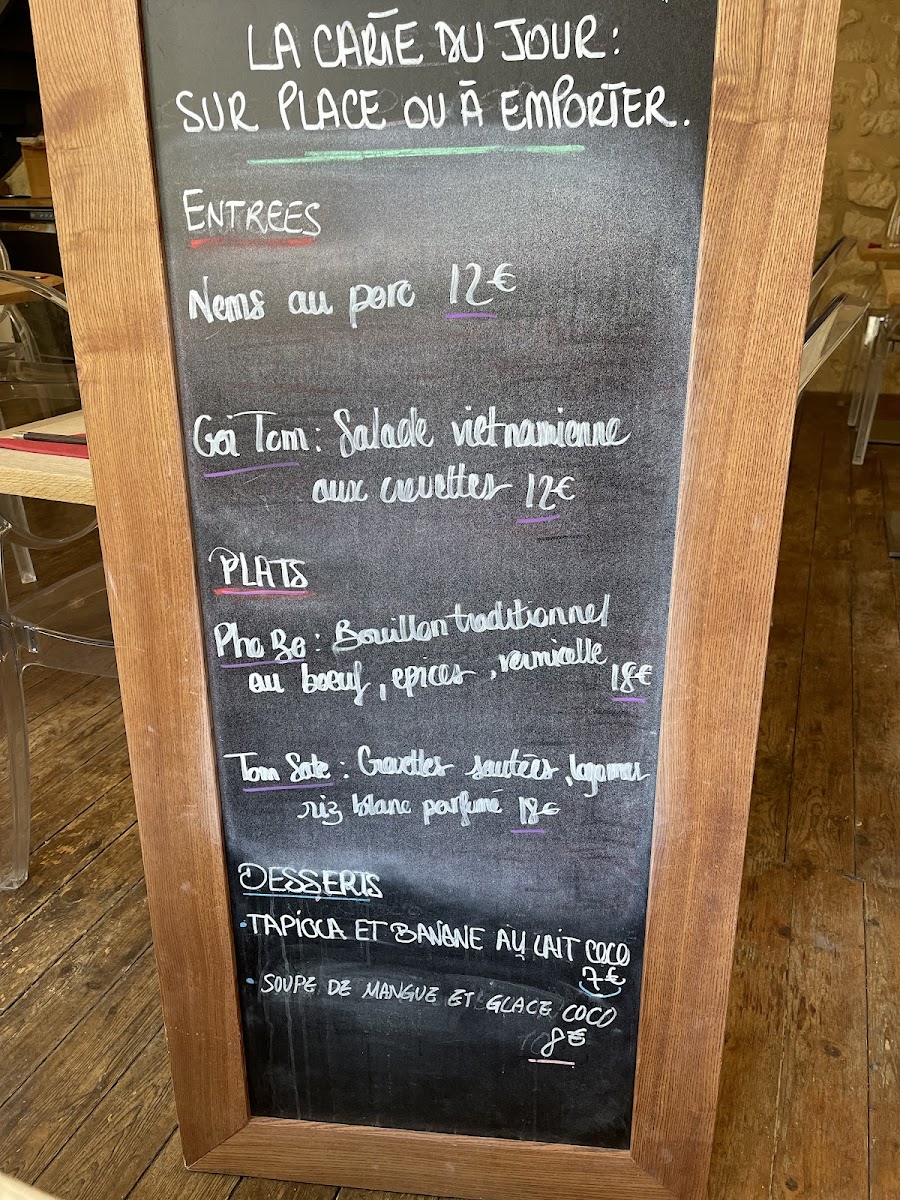 LA CARTE DU JOUR :
SUR PLACE OU À EMPORTER.
ENTREES
Nems au porc 12€
Goi Tom : Salade vietnamienne
aux crevettes 12€
PLATS
Pho Bo : Bouillon traditionnel
au boeuf, epices, vermicelle
18€
Tom Sate : Crevettes sautées, legumes
riz blanc parfumé 18€
DESSERTS
• TAPIOCA ET BANANE AU LAIT COCO
7€
• SOUPE DE MANGUE ET GLACE COCO
8€